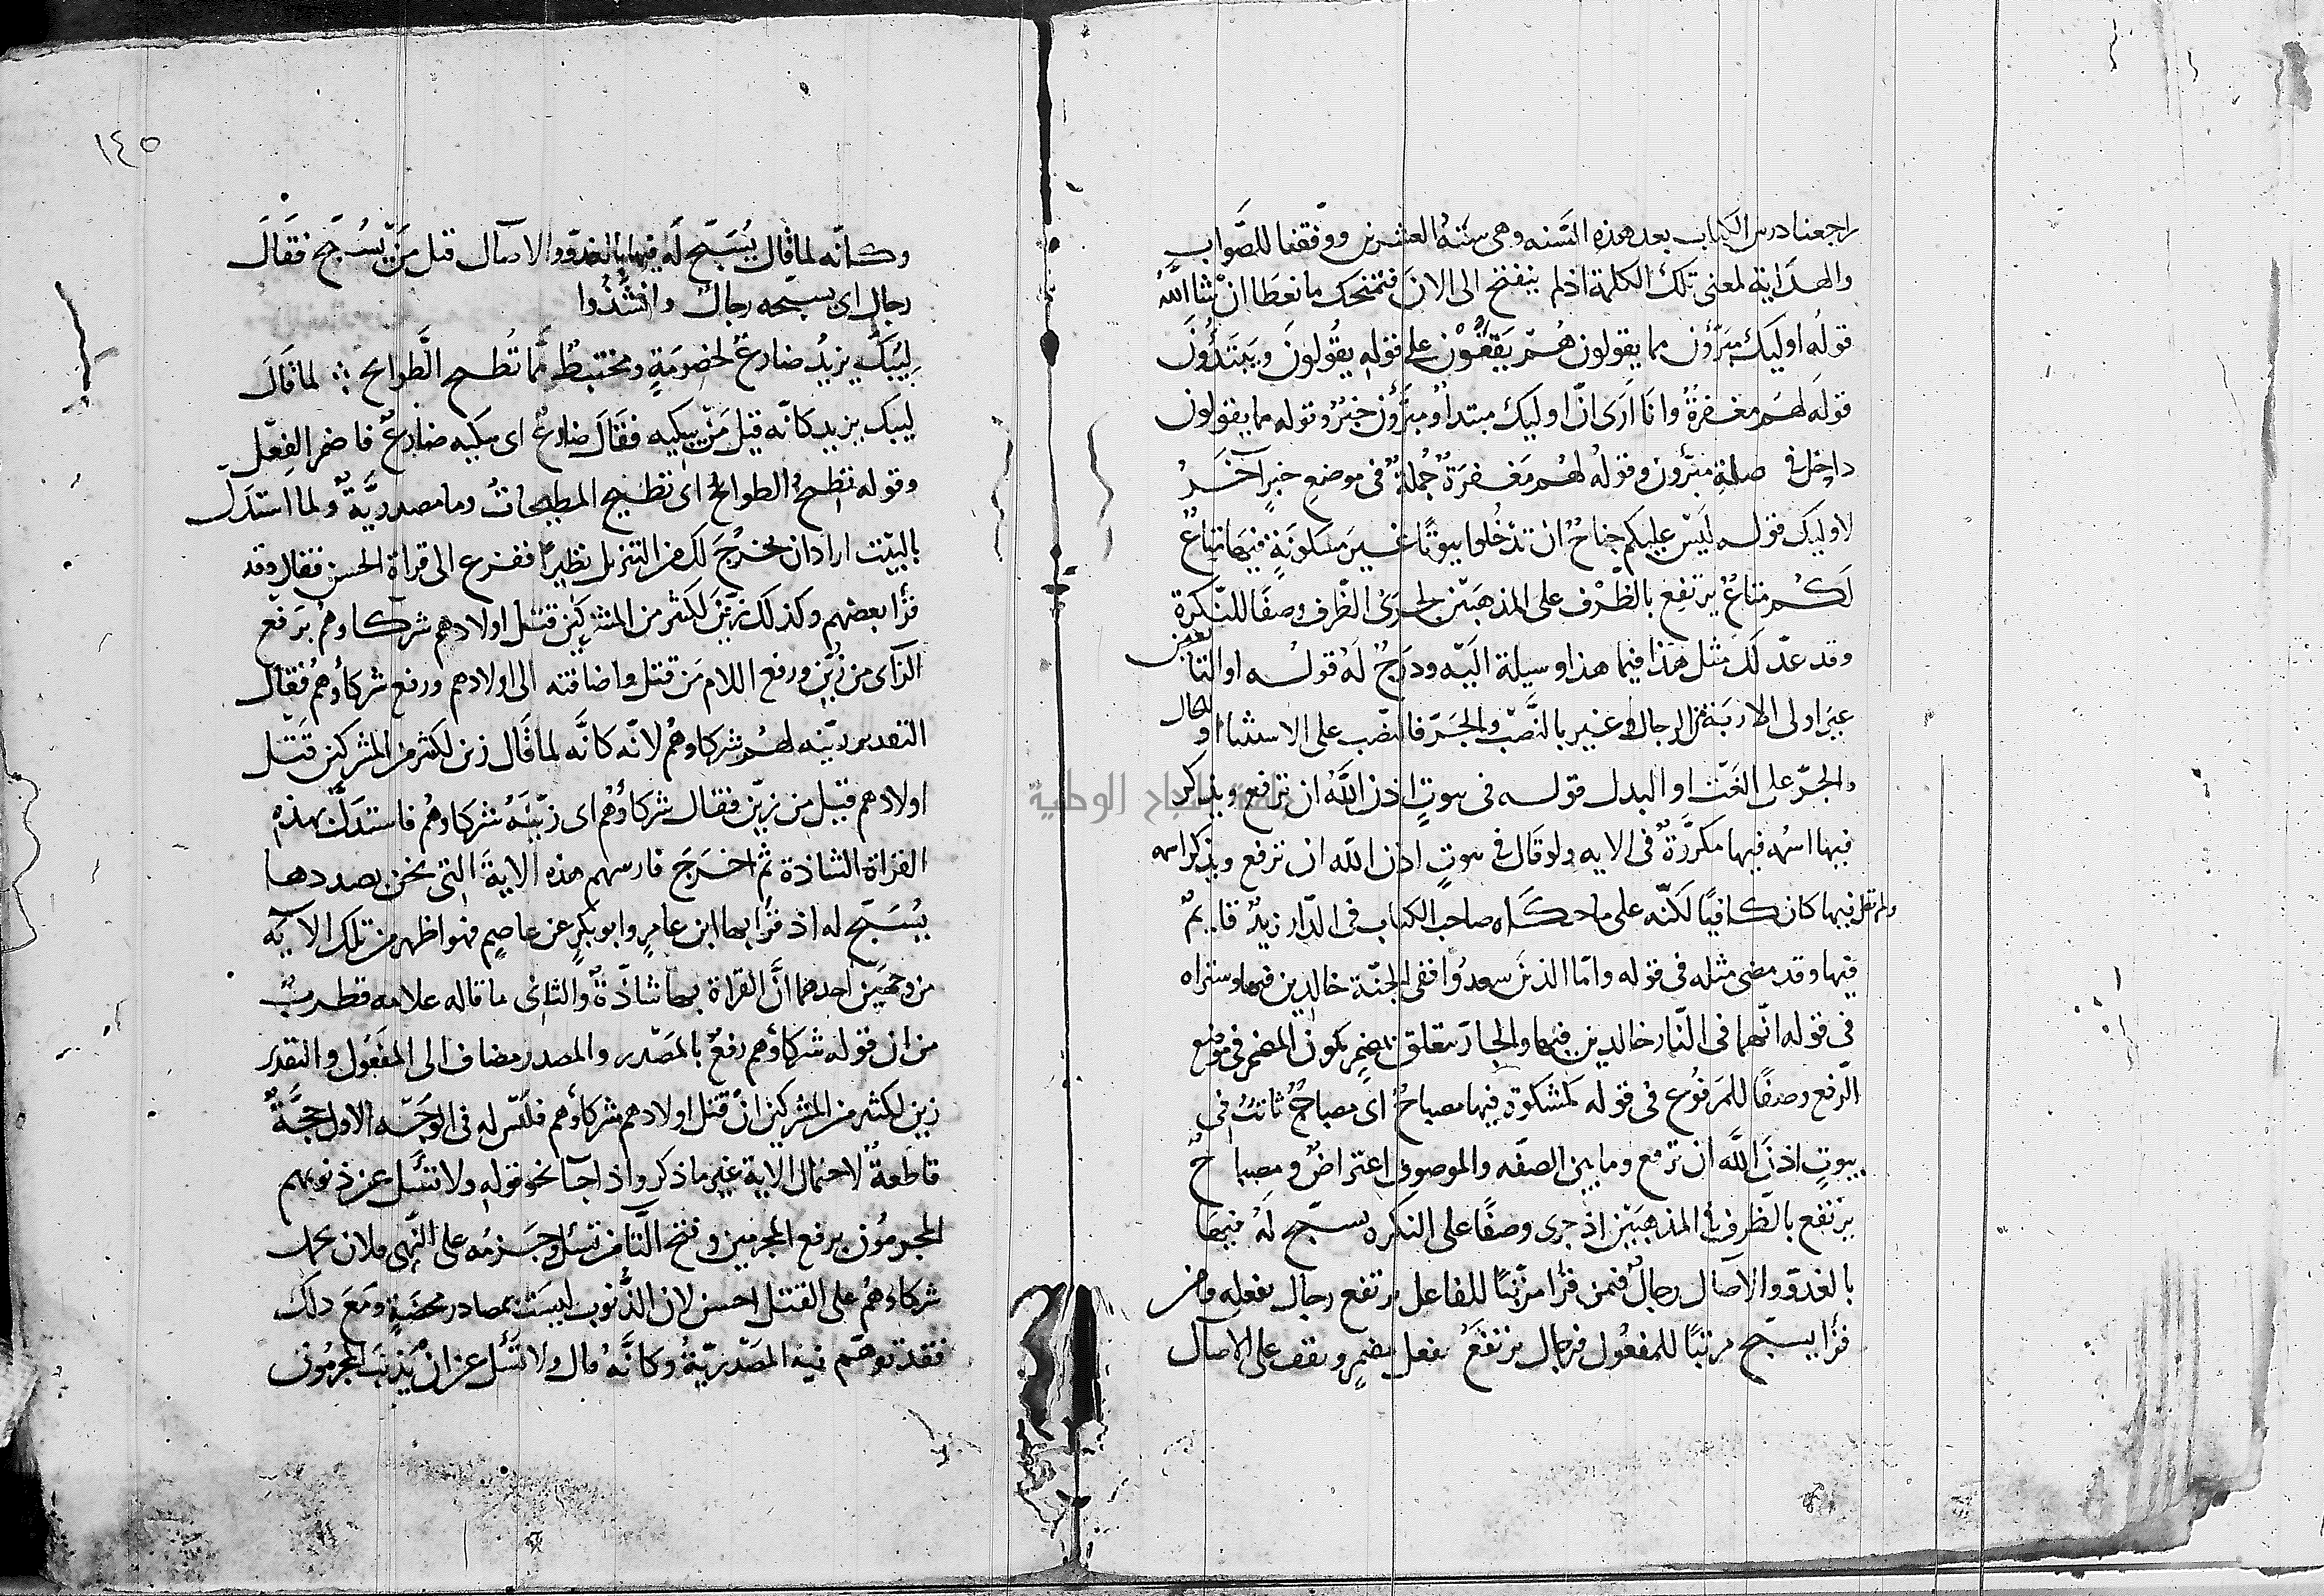 راجعنا درس الكتاب بعد هذه السنه وهى سنة العشرين ووفقنا للصواب
والهداية لمعنى تلك الكلمة اذ لم ينفتح الى الان فتمنحك ما نعطا ان شا الله
قوله اوليك مبرؤن مما يقولون هم يقفون على قوله يقولون ويبتدؤن
قوله لهم مغفرة وانا ارى ان اوليك مبتدا ومبرؤن خبر وقوله مما يقولون
داخل فى صلة مبرون وقوله لهم مغفرة جملة فى موضع خبر آخر
لاوليك قوله ليس عليكم جناح ان تدخلوا بيوتا غير مسكونة فيها متاع
لكم متاع يرتفع بالظرف على المذهبين لجرى الظرف وصفا للنكرة
وقد عد لك مثل هذا فيما هذا وسيلة اليه ودرج له قوله او التابعين
غير اولى الاربة من الرجال وغير بالنصب والجر فالنصب على الاستثنا او الحال
والجر على النعت او البدل قوله فى بيوت اذن الله ان ترفع ويذكر
فيها اسمه فيها مكررة فى الايه ولو قال فى بيوت اذن الله ان ترفع ويذكر اسمه
ولم تقل فيها كان كافيا لكنه على ما حكاه صاحب الكتاب فى الدار زيد قايم
فيها وقد مضى مثله فى قوله واما الذين سعدوا ففى الجنة خالدين فيها وستراه
فى قوله انهما فى النار خالدين فيها والجار يتعلق بمضمر يكون المضمر فى موضع
الرفع وصفا للمرفوع فى قوله كمشكوة فيها مصباح اى مصباح ثابت فى
بيوت اذن الله ان ترفع وما بين الصفه والموصوف اعتراض ومصباح
يرتفع بالظرف فى المذهبين اذ جرى وصفا على النكره يسبح له فيها
بالغدو والاصال رجال فمن قرا مرتبا للفاعل يرتفع رجال بفعله ومن
قرا يسبح مرتبا للمفعول فرجال يرتفع بفعل مضمر ويقف على الاصال
١٤٥
وكانه لما قال يسبح له فيها بالغدو والاصال قيل من يسبح فقال
رجال اى يسبحه رجال وانشدوا
ليبك يزيد ضارع لخصومة ومختبط مما تطيح الطوايح ؞ لما قال
ليبك يزيد كانه قيل من يبكيه فقال ضارع اى يبكيه ضارع فاضمر الفعل
وقوله تطيح الطوايح اى تطيح المطيحات وما مصدرية ولما استدل
بالبيت اراد ان يخرج لك من التنزيل نظيرا ففزع الى قراة الحسن فقال وقد
قرا بعضهم وكذلك زين لكثير من المشركين قتل اولادهم شركاوهم برفع
الزاى من زين ورفع اللام من قتل واضافته الى اولادهم ورفع شركاوهم فقال
التقدير زينه لهم شركاوهم لانه كانه لما قال زين لكثير من المشركين قتل
اولادهم قيل من زين فقال شركاوهم اى زينه شركاوهم فاستدل بهذه
القراة الشاذة ثم اخرج فارسهم هذه الاية التى نحن بصددها
يسبح له اذ قرا بها ابن عامر وابو بكر عن عاصم فهو اظهر من تلك الاية
من وجهين احدهما ان القراة بها شاذة والثانى ما قاله علامه قطرب
من ان قوله شركاوهم رفع بالمصدر والمصدر مضاف الى المفعول والتقدير
زين لكثير من المشركين ان قتل اولادهم شركاوهم فليس له فى الوجه الاول حجة
قاطعة لاحتمال الاية غير ما ذكر واذا جا نحو قوله ولا تسل عن ذنوبهم
المجرمون برفع المجرمين وفتح التا من تسل وجزمه على النهى فلان يحمل
شركاوهم على القتل احسن لان الذنوب ليست بمصادر محضة ومع ذلك
فقد توهم فيه المصدرية وكانه قال ولا تسل عن ان يذنب المجرمون